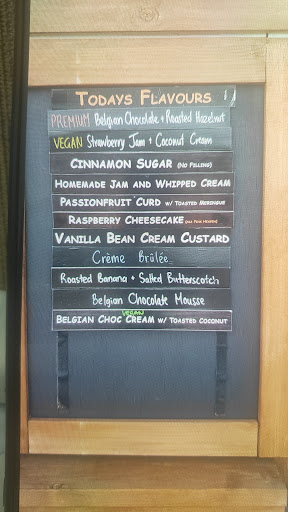 TODAYS FLAVOURS
PREMIUM Belgian Chocolate + Roasted Hazelnut
VEGAN Strawberry Jam + Coconut Cream
CINNAMON SUGAR (NO FILLING)
HOMEMADE JAM AND WHIPPED CREAM
PASSIONFRUIT CURD W/ TOASTED MERINGUE
RASPBERRY CHEESECAKE
VANILLA BEAN CREAM CUSTARD
Crème Brûlée
Roasted Banana + Salted Butterscotch
Belgian Chocolate Mousse
VEGAN
BELGIAN CHOC CREAM W/ TOASTED COCONUT